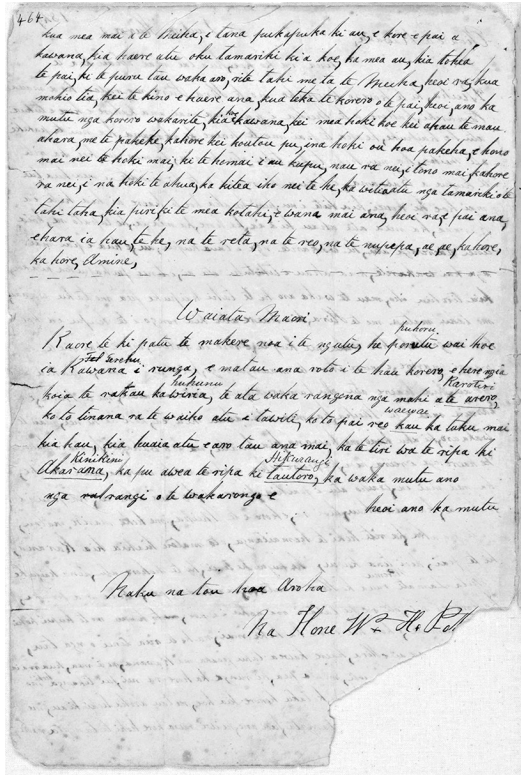 464
kua mea mai a te Meiha, e tana pukapuka ki au, e kore e pai a
kawana, kia haere atu oku tamariki ki a koe, ka mea au, kia tohea
te pai, ki te puru tau waha aro, rite tahi me ta te Meiha, heoi ra, kua
mohio tia, kei te kino e haere ana, kua teka te korero o te pai, heoi, ano ka
mutu nga korero wakarite, kia koe kawana, kei mea hoki koe kei ahau te mau
ahara, me te pakeke, kahore kei koutou pu, ena hoki ou hoa pakeha, e hono
mai nei te hoki mai, ki te homai i au kupu, nau ra nei, i tono mai, kahore
ra nei, i na hoki te ahua, ka kitea iho nei te he, ki witiatu nga tamariki o te
tahi taha, kia pirepire te mea kotahi, e wana mai ana, heoi ra, e pai ana,
ehara ia hau, te he, na te reta, na te reo, na te nupepa, ae, ae, kahore,
kahore, Amine,
Waiata Maori
huhoru
Kaore te ki patu te makere noa i te ngutu, he porutu wai hoe
ia Kawana i runga, e matau ana roto i te hau korero, e here ngia
huhunu Karotiri
koia te rakau kawiria, te ata waka rangina nga mahi a te arero,
waewae
ko to tinana ra te waiho atu i tawiti, ko to pai reo kau ka tuku mai
kia hau, kia huaia atu e aro tau ana mai, ka te tiri wa te ripa ki
Kinikini Hikurangi
Akarana, ka pu awea te ripa ki tautoro, ka waka mutu ano
nga rarangi o te wakarongo e heoi ano ka mutu
Naku na tou hoa Aroha
Na Hone W. H. P